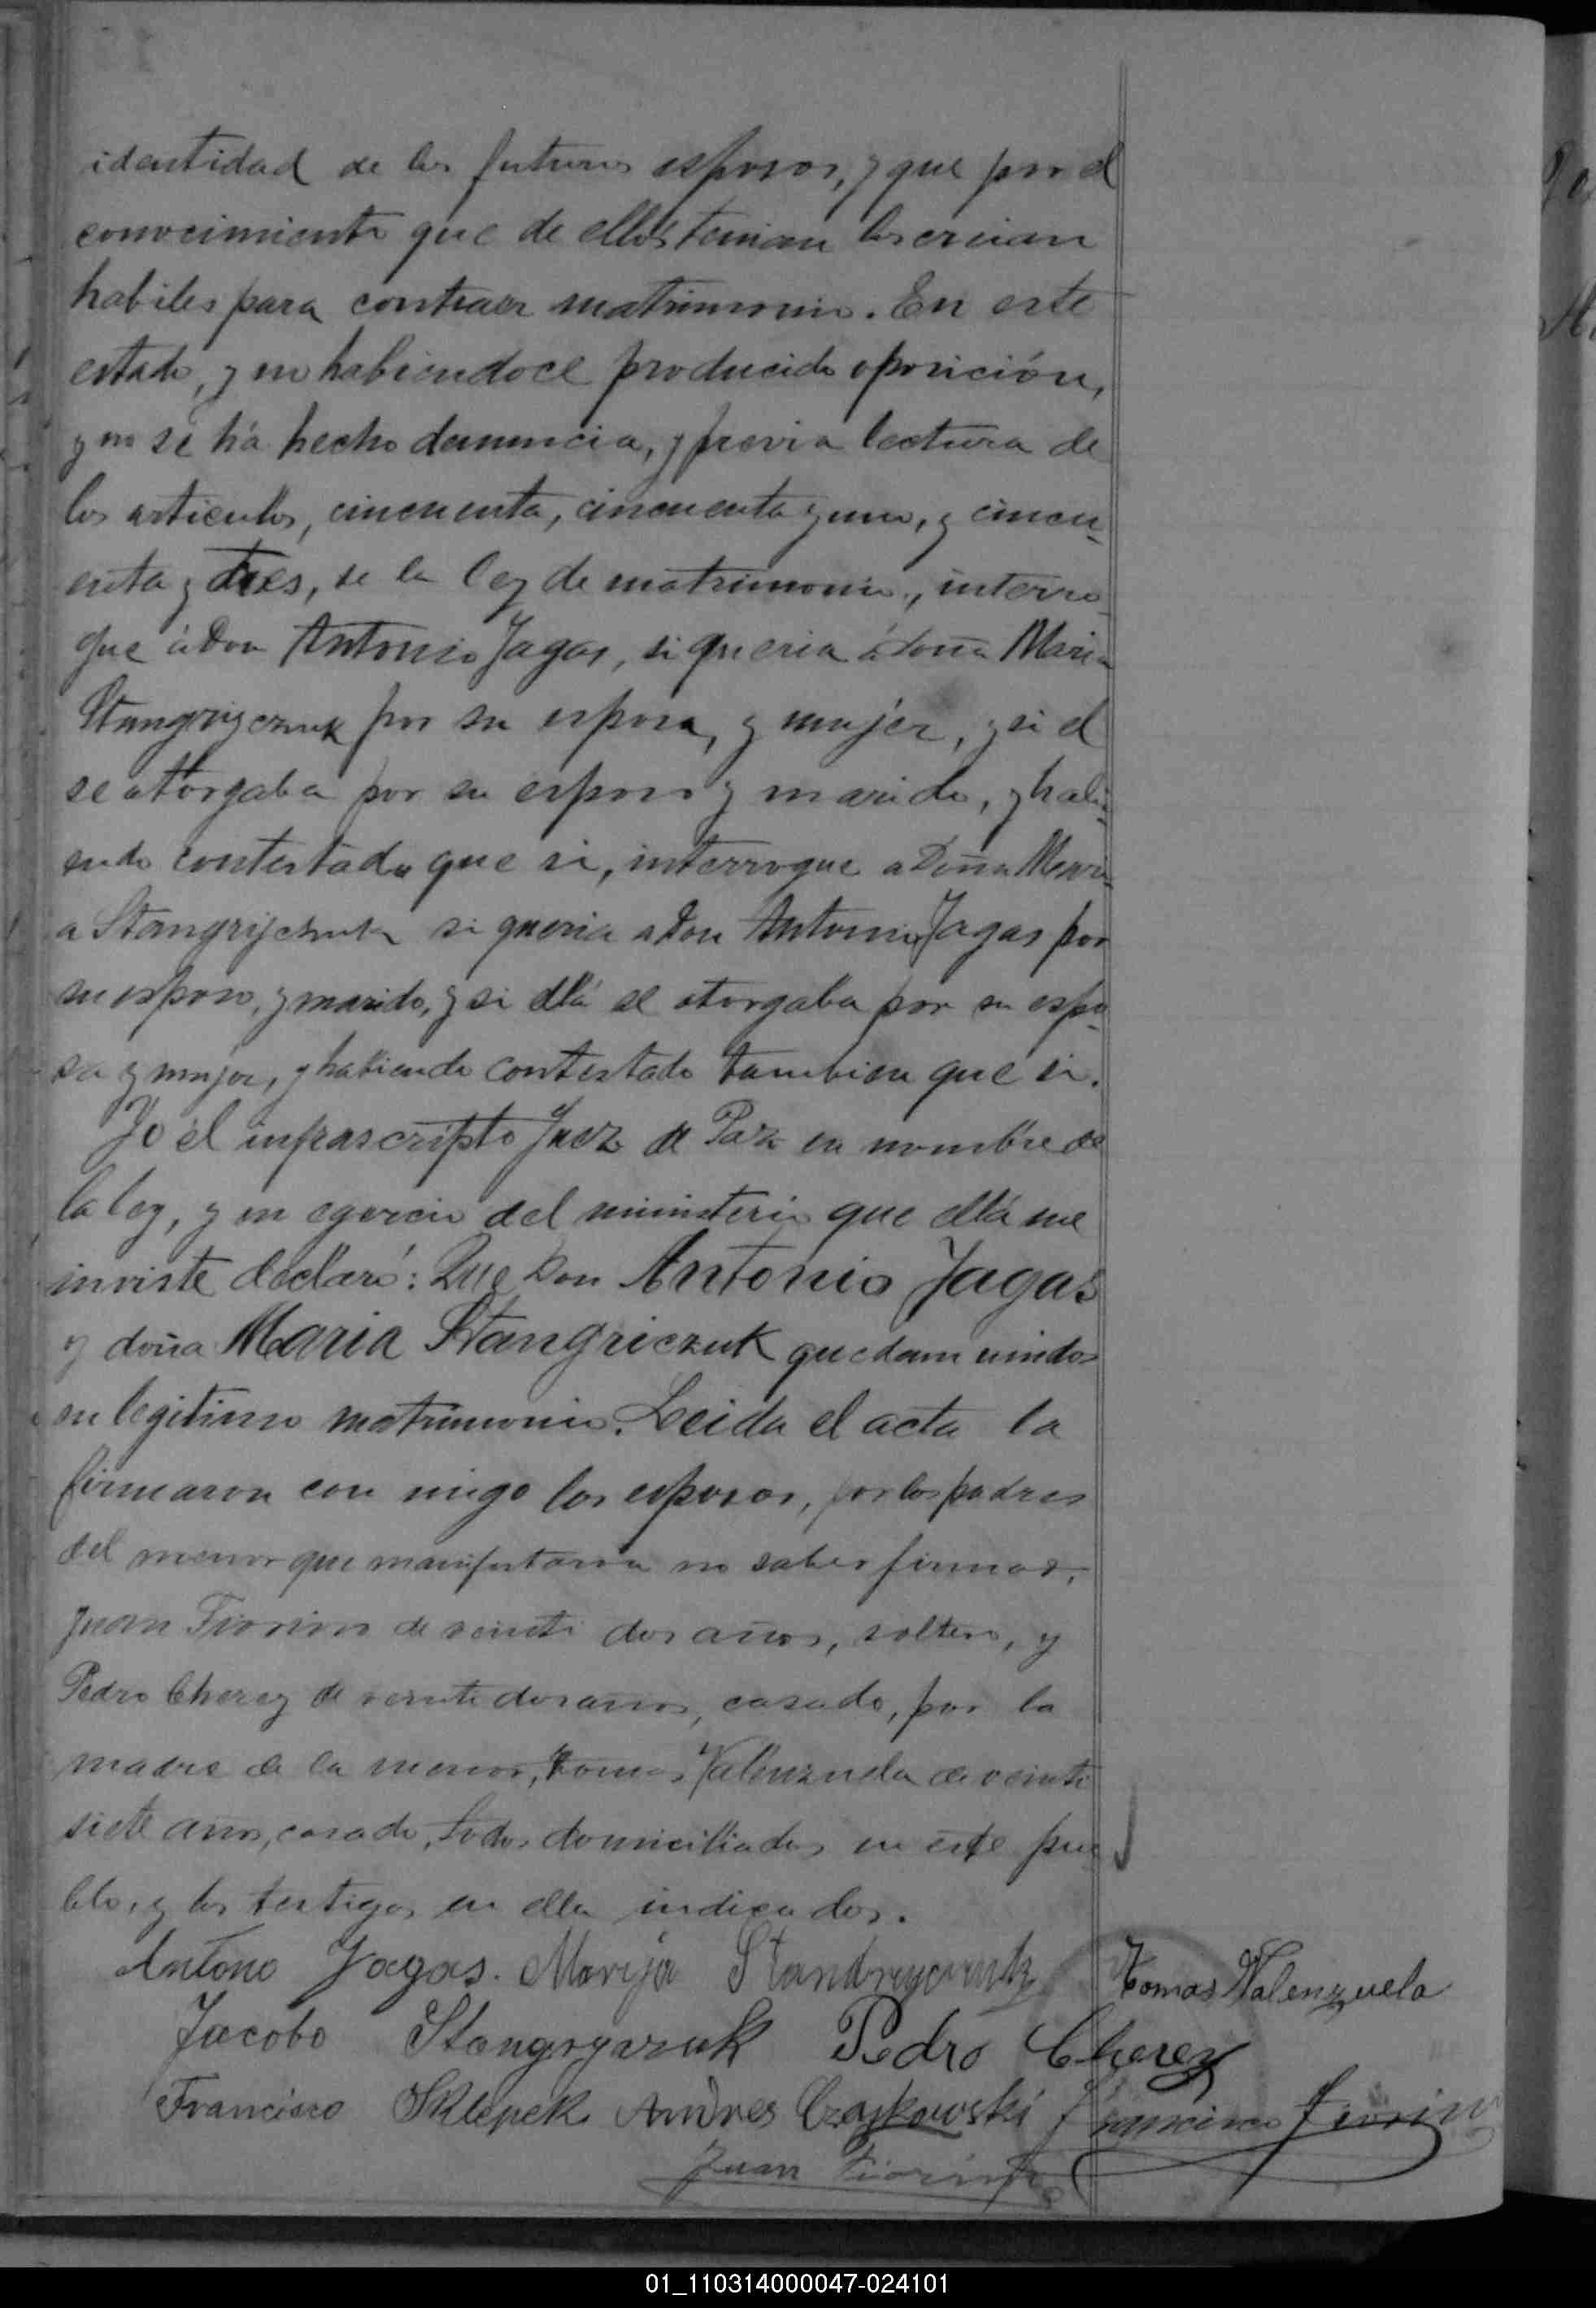 identidad de los futuros esposos, y que por el
conocimiento que de ellos tenian los creian
habiles para contraer matrimonio. En este
estado, y no habiendoce producido oposición,
y no se há hecho denuncia, y previa lectura de
los articulos, cincuenta, cincuenta y uno, y cincu-
enta y tres, de la ley de matrimonio, interro-
gue á Don Antonio Jagas, si queria á doña Maria
Stangryczuk por su esposa, y mujer, y si el
se otorgaba por su esposo y marido, y habi-
endo contestado que si, interrogue a Doña Mari-
a Stangryczuk si queria a Don Antonio Jagas por
su esposo, y marido, y si ella se otorgaba por su espo-
sa y mujer, y habiendo contestado tambien que si.
Yo el infrascripto Juez de Paz en nombre de
la ley, y en egercio del ministerio que ella me
inviste declaro: Que Don Antonio Jagas
y doña Maria Stangriczuk quedam unidos
en legitimo matrimonio. Leida el acta la
firmaron con migo los esposos, por los padres
del menor que manifestaron no saber firmar,
Juan Fiorino de veinti dos años, soltero, y
Pedro Cherez de veinte dos años, casado, por la
madre de la menor, Tomas Valenzuela de veinti
siete años, casado, todos domiciliados en este pue
blo, y los testigos en ella indicados.
Antono Jagas. Marija Standryczuk Tomas Valenzuela
Jacobo Stangryczuk Pedro Cherez
Francisco Sklepek Andres Czajkowski Francisco Fiorino
Juan Fiorino
01_110314000047-024101